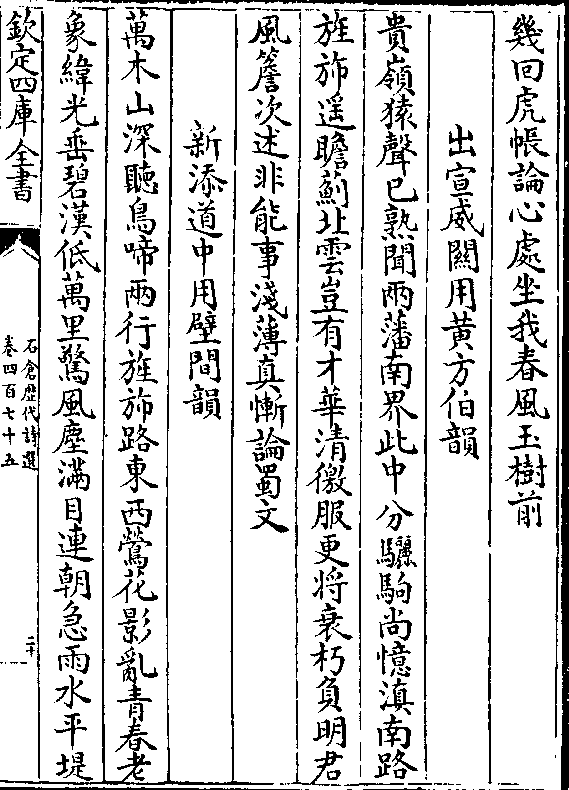 幾回虎帳論心處坐我春風玉樹前
出宣威關用黄方伯韻
貴嶺猿聲已熟聞兩藩南界此中分驪駒尚憶滇南路
旌斾遥瞻薊北雲豈有才華清徼服更将衰朽負明君
風簷次述非能事淺薄真慚論蜀文
新添道中用壁間韻
萬木山深聽鳥啼兩行旌斾路東西鶯花影亂青春老
象緯光垂碧漢低萬里驚風塵滿目連朝急雨水平堤
欽定四庫全書
石倉歴代詩選
卷四百七十五
二十